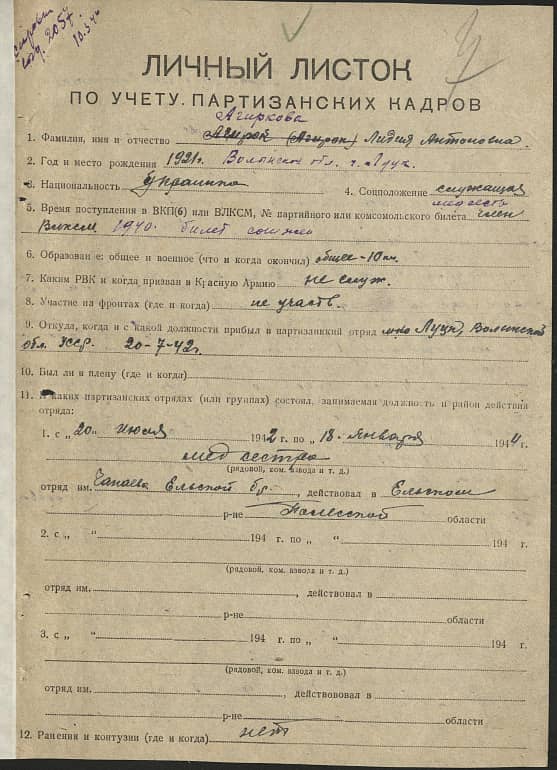 10.3.4
ЛИЧНЫЙ ЛИСТОК
ПО УЧЕТУ ПАРТИЗАНСКИХ КАДРОВ
Агиркова
1. Фамилия, имя и отчество Лидия Антоновна.
2. Год и место рождения 1921г. Волынская обл. г. Луцк.
3. Национальность украинка 4. Соцположение служащая
медсестр
5. Время поступления в ВКП(б) или ВЛКСМ, № партийного или комсомольского билета член
ВЛКСМ 1940. билет сожжен
6. Образован е: общее и военное (что и когда окончил) общее - 10 кл.
7. Каким РВК и когда призван в Красную Армию не служ.
8. Участие на фронтах (где и когда) не участв.
9. Откуда, когда и с какой должности прибыл в партизанский отряд Луцк, Волынской
обл. УССР. 20-7-42г.
10. Был ли в плену (где и когда)
11. В каких партизанских отрядах (или группах) состоял, занимаемая должность и район действия
отряда:
1. с „ 20 " июля 1942 г. по „ 18 " января 1944 г.
мед сестра
(рядовой, ком. взвода и т. д.)
отряд им. Чапаева Ельской бр., действовал в Ельском
р-не Полесской области
2. с „ " 194 г. по „ " 194 г.
(рядовой, ком. взвода и т. д.)
отряд им. , действовал в
р-не области
3. с „ " 194 г. по „ " 194 г.
(рядовой, ком. взвода и т. д.)
отряд им. , действововал в
р-не области
12. Ранения и контузии (где и когда) нет